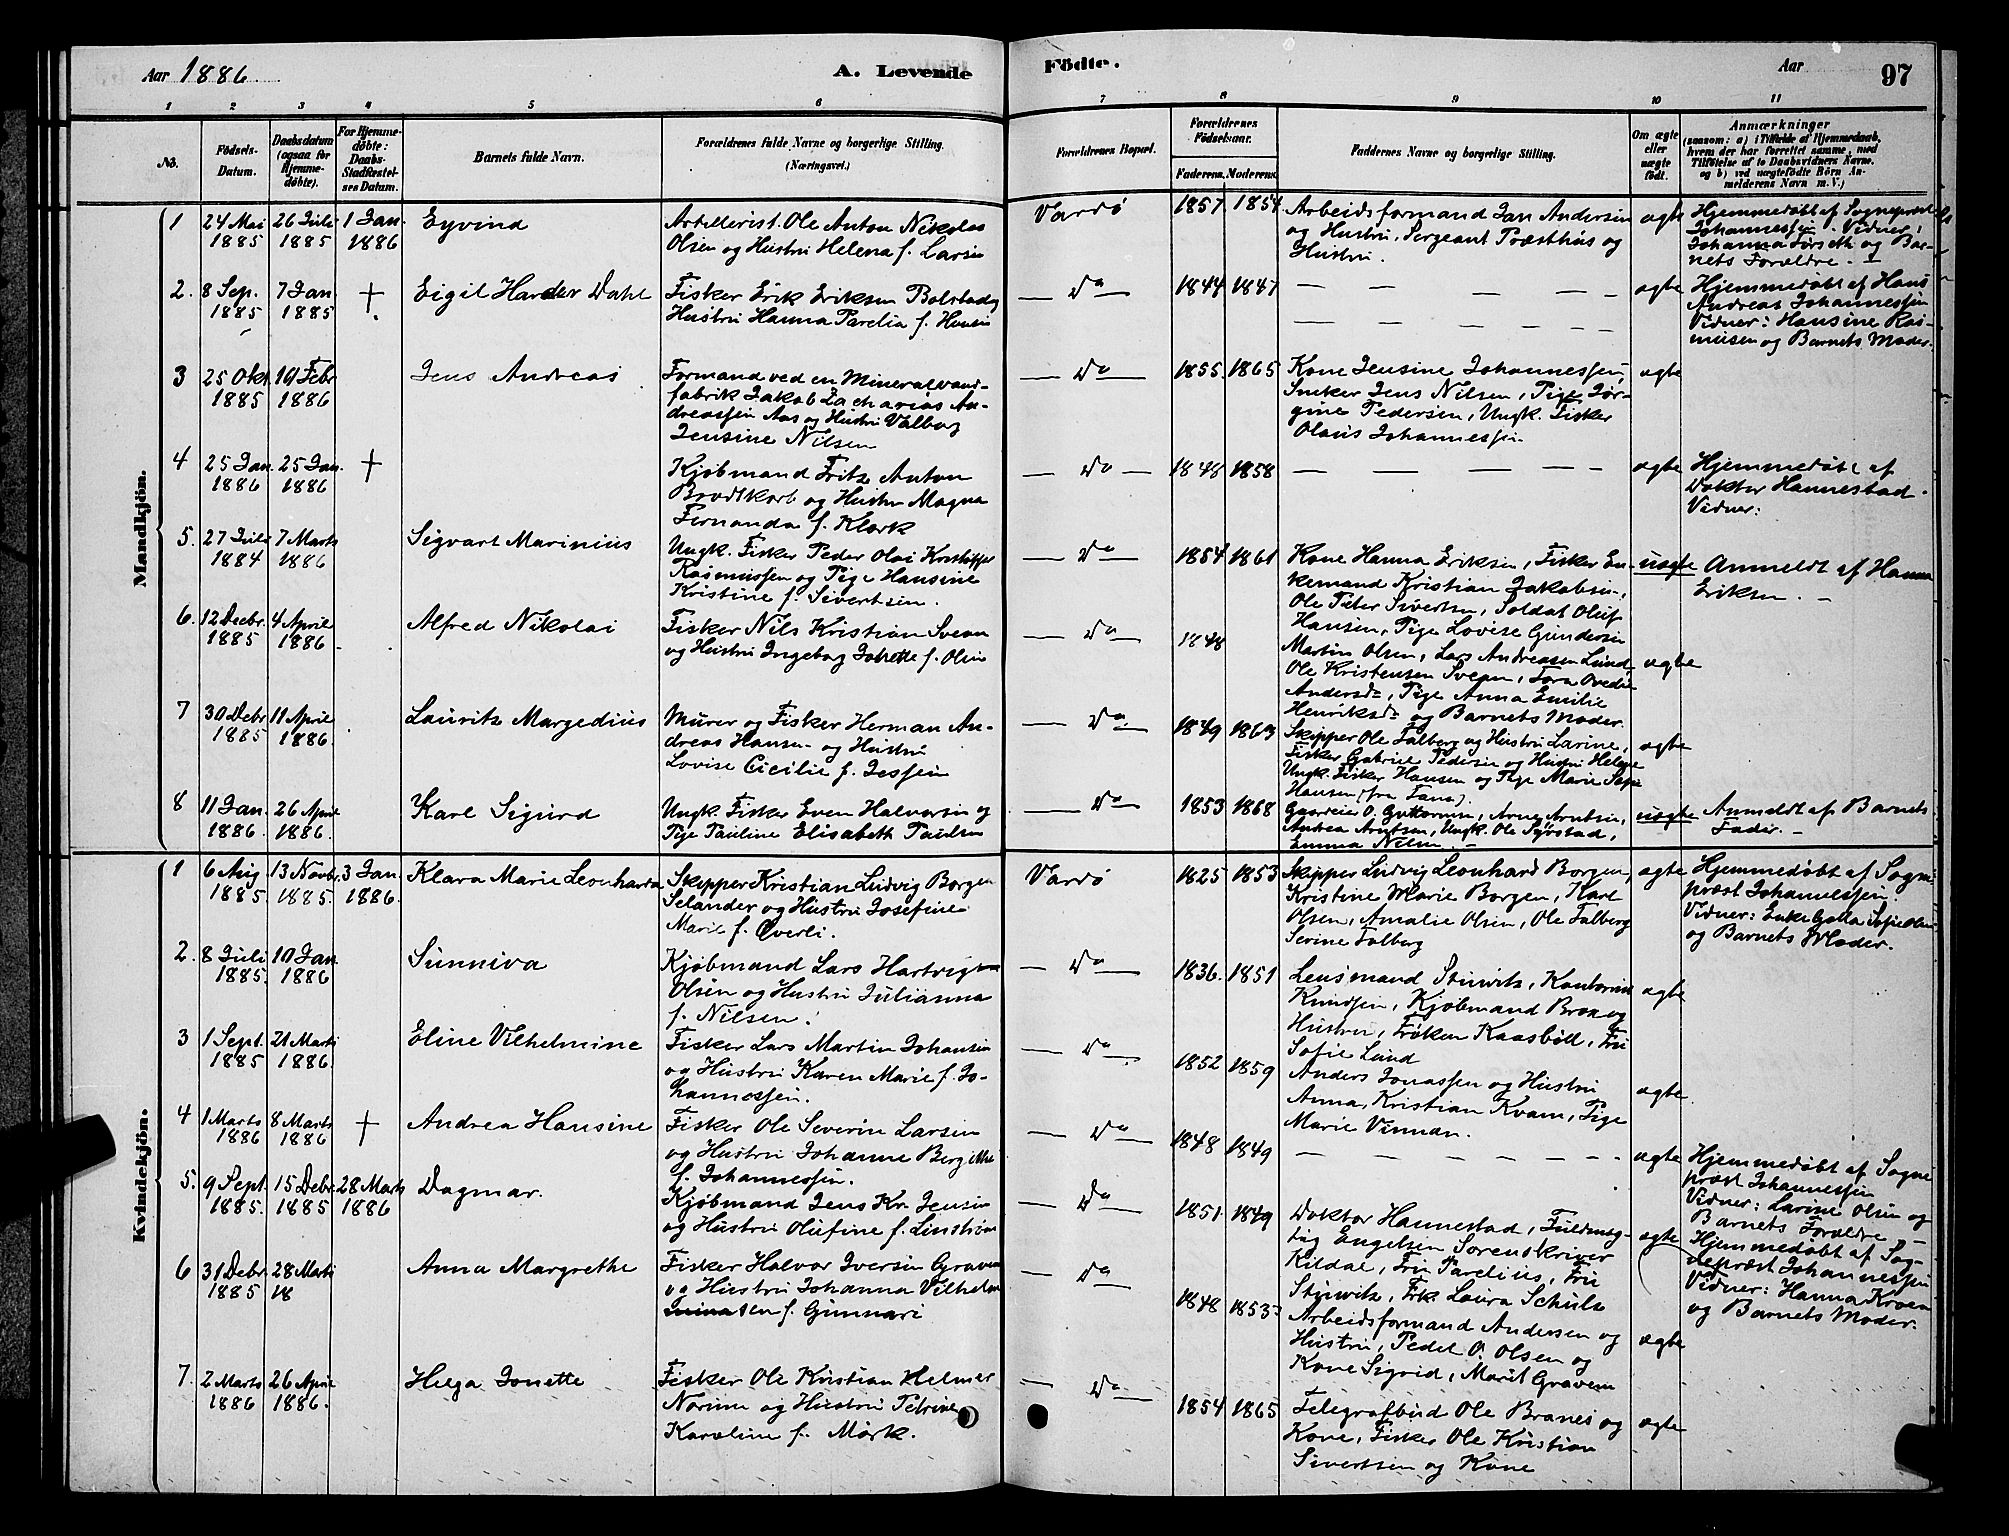 Aar 1886
A. Levende
Födte.
Aar
97
1 2 3 4 5 6 7 8 9 10 11
No.
Födsels-
Datum.
Daabsdatum
(ogsaa for
Hjemme-
döbte).
For Hjemme-
döbte:
Daabs-
Stadfæstel-
ses Datum.
Barnets fulde Navn.
Forældrenes fulde Navne og borgerlige Stilling.
(Næringsvei.)
Forældrenes Bopæl.
Forældrenes
Födselsaar.
Faderens. Moderens.
Faddernes Navne og borgerlige Stilling.
Om ægte
eller
uægte
födt.
Anmærkninger
(saasom: a) i Tilfælde af Hjemmedaab,
hvem der har forrettet samme, med
Tilföielse af to Daabsvidners Navne.
og b) ved uægtefödte Börn An-
melderens Navn m. V.)
Mandkjön.
1 24 Mai 1885 26 Juli 1885 1 Jan. 1886 Eyvind
Artillerist Ole Anton Nikolas
Olsen og Hustru Helena f. Larsen
Vardø 1857. 1854
Arbeidsformand Jan Andersen
og Hustru, Sergeant Præsthus og
Hustru.
ægte
Hjemmedøbt af Sognepræst
Johannessen. Vidner:
Johanna Førseth og Bar-
nets Forældre.
2. 8 Sep. 1885 7 Jan. 1885 + Eigil Harder Dahl
Fisker Erik Eriksen Bolstad og
Hustru Hanna Parelia f. Hansen
— Do — 1844 1847
ægte
Hjemmedøbt af Hans
Andreas Johannessen
Vidner: Hansine Ras-
mussen og Barnets Moder.
3 25 Okt. 1885 19 Febr 1886 Jens Andreas
Formand ved en Mineralvand-
fabrik Jakob Zacharias An-
dreassen Aas og Hustru Valborg
Jensine Nilsen
— Do — 1855. 1865
Kone Jensine Johannessen,
Snekker Jens Nilsen, Pige Jør-
gine Pedersen, Ungk. Fisker
Olaus Johannessen
ægte
4 25 Jan. 1886 25 Jan. 1886 +
Kjøbmand Fritz Anton
Brodtkorb og Hustru Magna
Fernanda f. Klark
— Do — 1848 1858
ægte
Hjemmedøbt af
Doktor Hannestad.
Vidner:
5. 27 Juli 1884 7 Marts 1886 Sigvart Marinius
Ungk. Fisker Peder Olai Kristoffer
Rasmussen og Pige Hansine
Kristine f. Sivertsen.
— Do — 1854 1861
Kone Hanna Eriksen, Fisker En-
kemand Kristian Jakobsen,
Ole Peter Sivertsen, Soldat Oluf
Hansen, Pige Lovise Gundersen
uægte
Anmeldt af Hanna
Eriksen. —
6. 12 Decbr. 1885 4 April 1886 Alfred Nikolai
Fisker Nils Kristian Svean
og Hustru Ingeborg Johette f. Olsen
— Do — 1848
Martin Olsen, Lars Andreasen Lund,
Ole Kristensen Svean, Tora Ovedie
Andersdr, Pige Anna Emilie
Henriksdr og Barnets Moder.
ægte
7 30 Debr 1885 11 April 1886. Lauritz Margedius
Murer og Fisker Herman An-
dreas Hansen og Hustru
Lovise Cicilie f. Jessen
— Do — 1849 1863
Skipper Ole Falberg og Hustru Larine,
Fisker Gabriel Pedersen og Hustru Helene
Ungk. Fisker Hansen og Pige Marie
Hansen (fra Tana).
ægte
8 11 Jan. 1886. 26 April 1886. Karl Sigurd
Ungk. Fisker Even Halvorsen og
Pige Pauline Elisabeth Paulsen
— Do — 1853 1868
Gaardeier O. Guttormsen, Arne Arntsen,
Andrea Arntsen, Ungk. Ole Syrstad,
Emma Nilsen. —
uægte
Anmeldt af Barnets
Fader. —
Kvindekjön.
1 6 Aug 1885. 13 Novbr. 1885. 3 Jan. 1886. Klara Marie Leonharda
Skipper Kristian Ludvig Borgen
Selander og Hustru Josefine
Marie f. Øverli.
Vardø 1825 1853
Skipper Ludvig Leonhard Borgen,
Kristine Marie Borgen, Karl
Olsen, Amalie Olsen, Ole Falberg
Serine Falberg
ægte
Hjemmedøbt af Sogne
præst Johannessen.
Vidner: Enke Golla Sofie Olsen
og Barnets Moder.
2. 8 Juli 1885. 10 Jan. 1886 Sunniva
Kjøbmand Lars Hartvigsen
Olsen og Hustru Julianna
f. Nilsen.
— Do — 1836. 1851
Lensmand Stuwitz, Kontorist
Knudsen, Kjøbmand Brox og
Hustru, Frøken Kaasbøll, Fru
Sofie Lund
ægte
3 1 Sept. 1885 21 Marts 1886. Eline Vilhelmine
Fisker Lars Martin Johansen
og Hustru Karen Marie f. Jo-
hannessen.
— Do — 1852 1859
Anders Jonassen og Hustru
Anna, Kristian Kvam, Pige
Marie Vinnan.
ægte
4 1 Marts 1886 8 Marts 1886 + Andrea Hansine
Fisker Ole Severin Larsen
og Hustru Johanne Bergitte
f. Johannessen.
— Do — 1848 1849
ægte
Hjemmedøbt af Sogne
præst Johannessen
Vidner: Larine Olsen og
Barnets Forældre —
5. 9 Sept. 1885. 15 Debr. 1885 28 Marts 1886 Dagmar.
Kjøbmand Jens Kr. Jensen
og Hustru Olufine f. Lindstrøm
— Do — 1851. 1849
Doktor Hannestad, Fuldmæg-
tig Engelsen Sorenskriver
Kildal, Fru Parelius, Fru
Stuwitz, Frk. Laura Schulz
ægte
Hjemmedøbt af Sog-
nepræst Johannessen
Vidner: Hanna Kroen
og Barnets Moder.
6 31 Debr. 1885 28 Marts 18 Anna Margrethe
Fisker Halvor Iversen Graven
og Hustru Johanna Vilhelm
f. Gunnari
— Do — 1848 1853
Arbeidsformand Andersen og
Hustru, Peder O. Olsen og
Kone Sigrid, Marit Gravem
ægte
7. 2 Marts 1886 26 April 1886. Helga Jonette
Fisker Ole Kristian Helmer
Norum og Hustru Petrine
Karoline f. Mørk.
— Do — 1854 1865
Telegrafbud Ole Branes og
Kone, Fisker Ole Kristian
Sivertsen og Kone
ægte